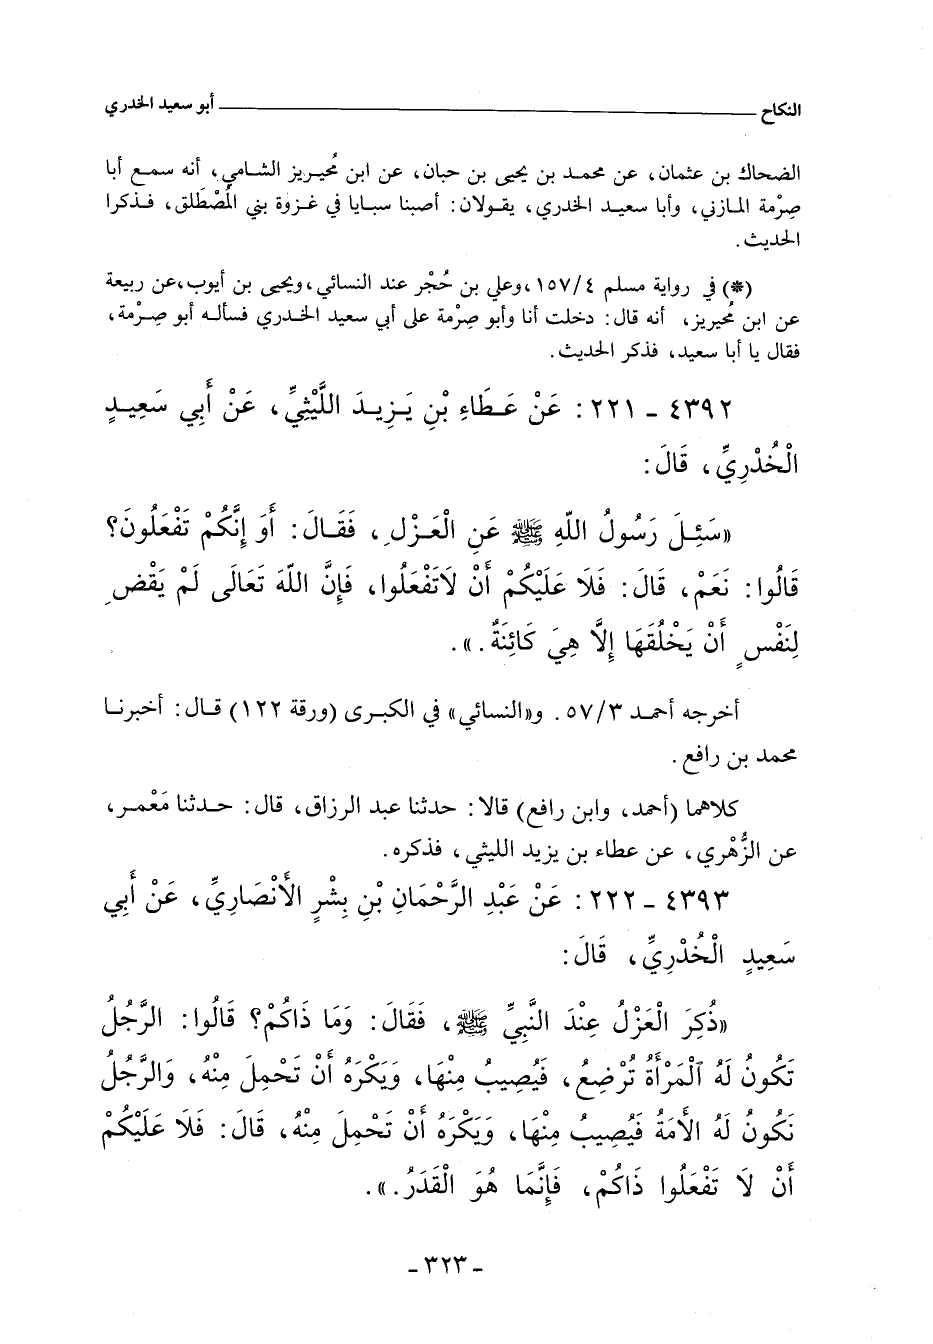 النكاح ــــــــــــــــــــ أبو سعيد الخدري
الضحاك بن عثمان، عن محمد بن يحيى بن حبان، عن ابن مُحيريز الشامي، أنه سمع أبا
صِرْمة المازني، وأبا سعيد الخدري، يقولان: أصبنا سبايا في غزوة بني المُصْطَلق، فذكرا
الحديث.
(*) في رواية مسلم ٤/١٥٧، وعلي بن حُجْر عند النسائي، ويحيى بن أيوب، عن ربيعة
عن ابن مُحيريز، أنه قال: دخلت أنا وأبو صِرْمة على أبي سعيد الخدري فسأله أبو صِرْمة،
فقال يا أبا سعيد، فذكر الحديث.
٤٣٩٢ - ٢٢١: عَنْ عَطَاءِ بْنِ يَزِيدَ اللَّيْثِيِّ، عَنْ أَبِي سَعِيدٍ
الْخُدْرِيِّ، قَالَ:
«سَئِلَ رَسُولُ اللّهِ ﷺ عَنِ الْعَزْلِ، فَقَالَ: أَوَ إِنَّكُمْ تَفْعَلُونَ؟
قَالُوا: نَعَمْ، قَالَ: فَلَا عَلَيْكُمْ أَنْ لَاتَفْعَلُوا، فَإِنَّ اللّهَ تَعَالَى لَمْ يَقْضِ
لِنَفْسٍ أَنْ يَخْلُقَهَا إِلَّا هِيَ كَائِنَةٌ.».
أخرجه أحمد ٣/٥٧. و«النسائي» في الكبرى (ورقة ١٢٢) قال: أخبرنا
محمد بن رافع.
كلاهما (أحمد، وابن رافع) قالا: حدثنا عبد الرزاق، قال: حدثنا مَعْمر،
عن الزُّهْري، عن عطاء بن يزيد الليثي، فذكره.
٤٣٩٣ - ٢٢٢: عَنْ عَبْدِ الرَّحْمَانِ بْنِ بِشْرٍ الأَنْصَارِيِّ، عَنْ أَبِي
سَعِيدٍ الْخُدْرِيِّ، قَالَ:
«ذُكِرَ الْعَزْلُ عِنْدَ النَّبِيِّ ﷺ، فَقَالَ: وَمَا ذَاكُمْ؟ قَالُوا: الرَّجُلُ
تَكُونُ لَهُ الْمَرْأَةُ تُرْضِعُ، فَيُصِيبُ مِنْهَا، وَيَكْرَهُ أَنْ تَحْمِلَ مِنْهُ، وَالرَّجُلُ
تَكُونُ لَهُ الأَمَةُ فَيُصِيبُ مِنْهَا، وَيَكْرَهُ أَنْ تَحْمِلَ مِنْهُ، قَالَ: فَلَا عَلَيْكُمْ
أَنْ لَا تَفْعَلُوا ذَاكُمْ، فَإِنَّمَا هُوَ الْقَدَرُ.».
- ٣٢٣ -